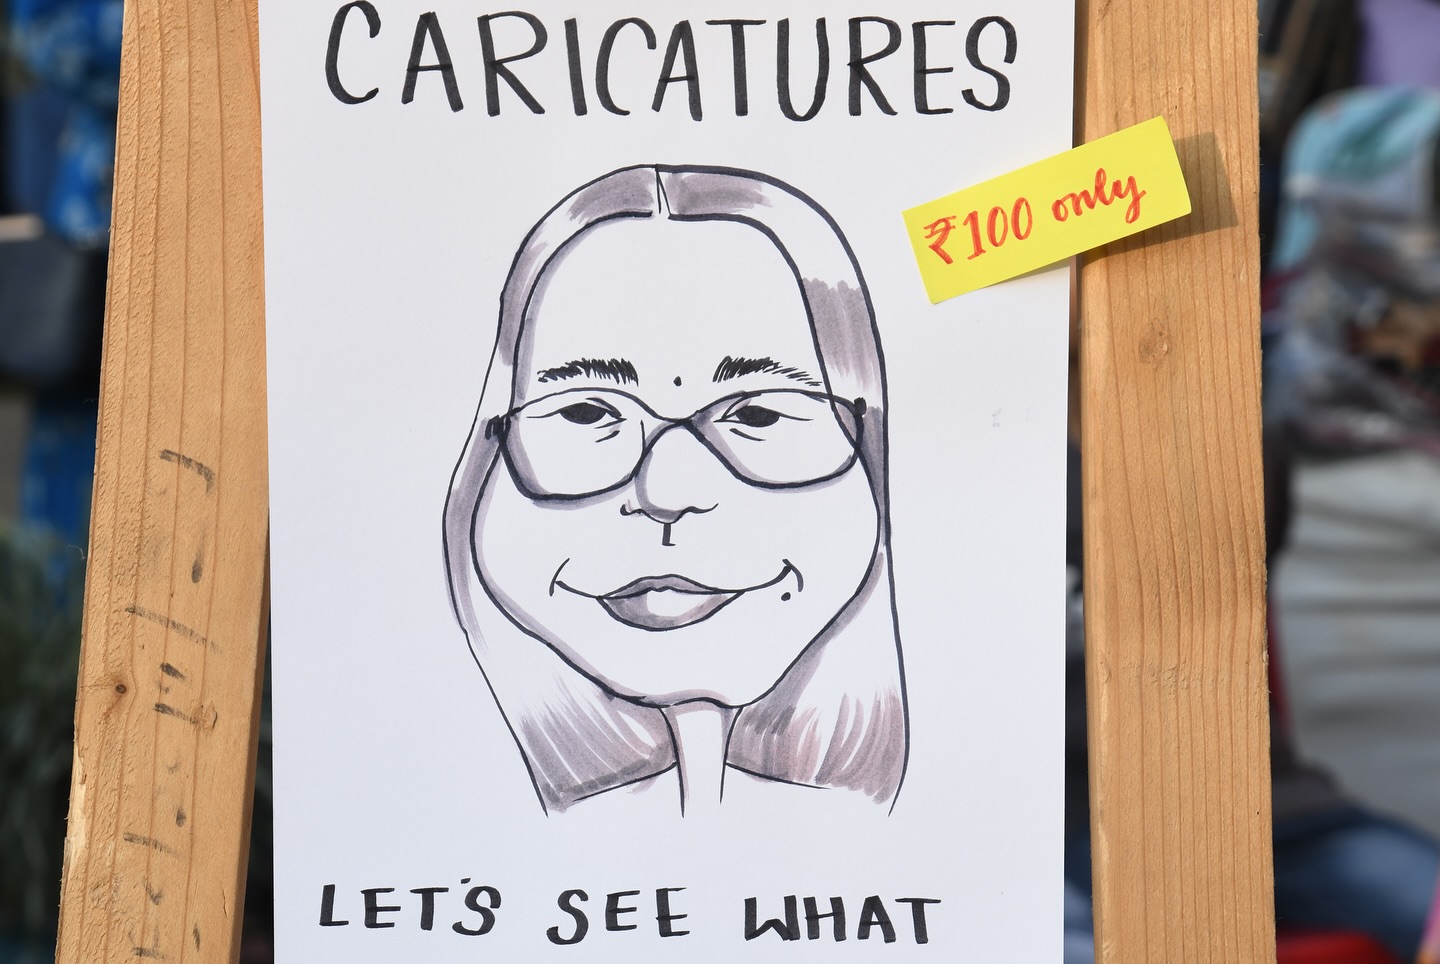 CARICATURES
₹100 only
LET'S SEE WHAT